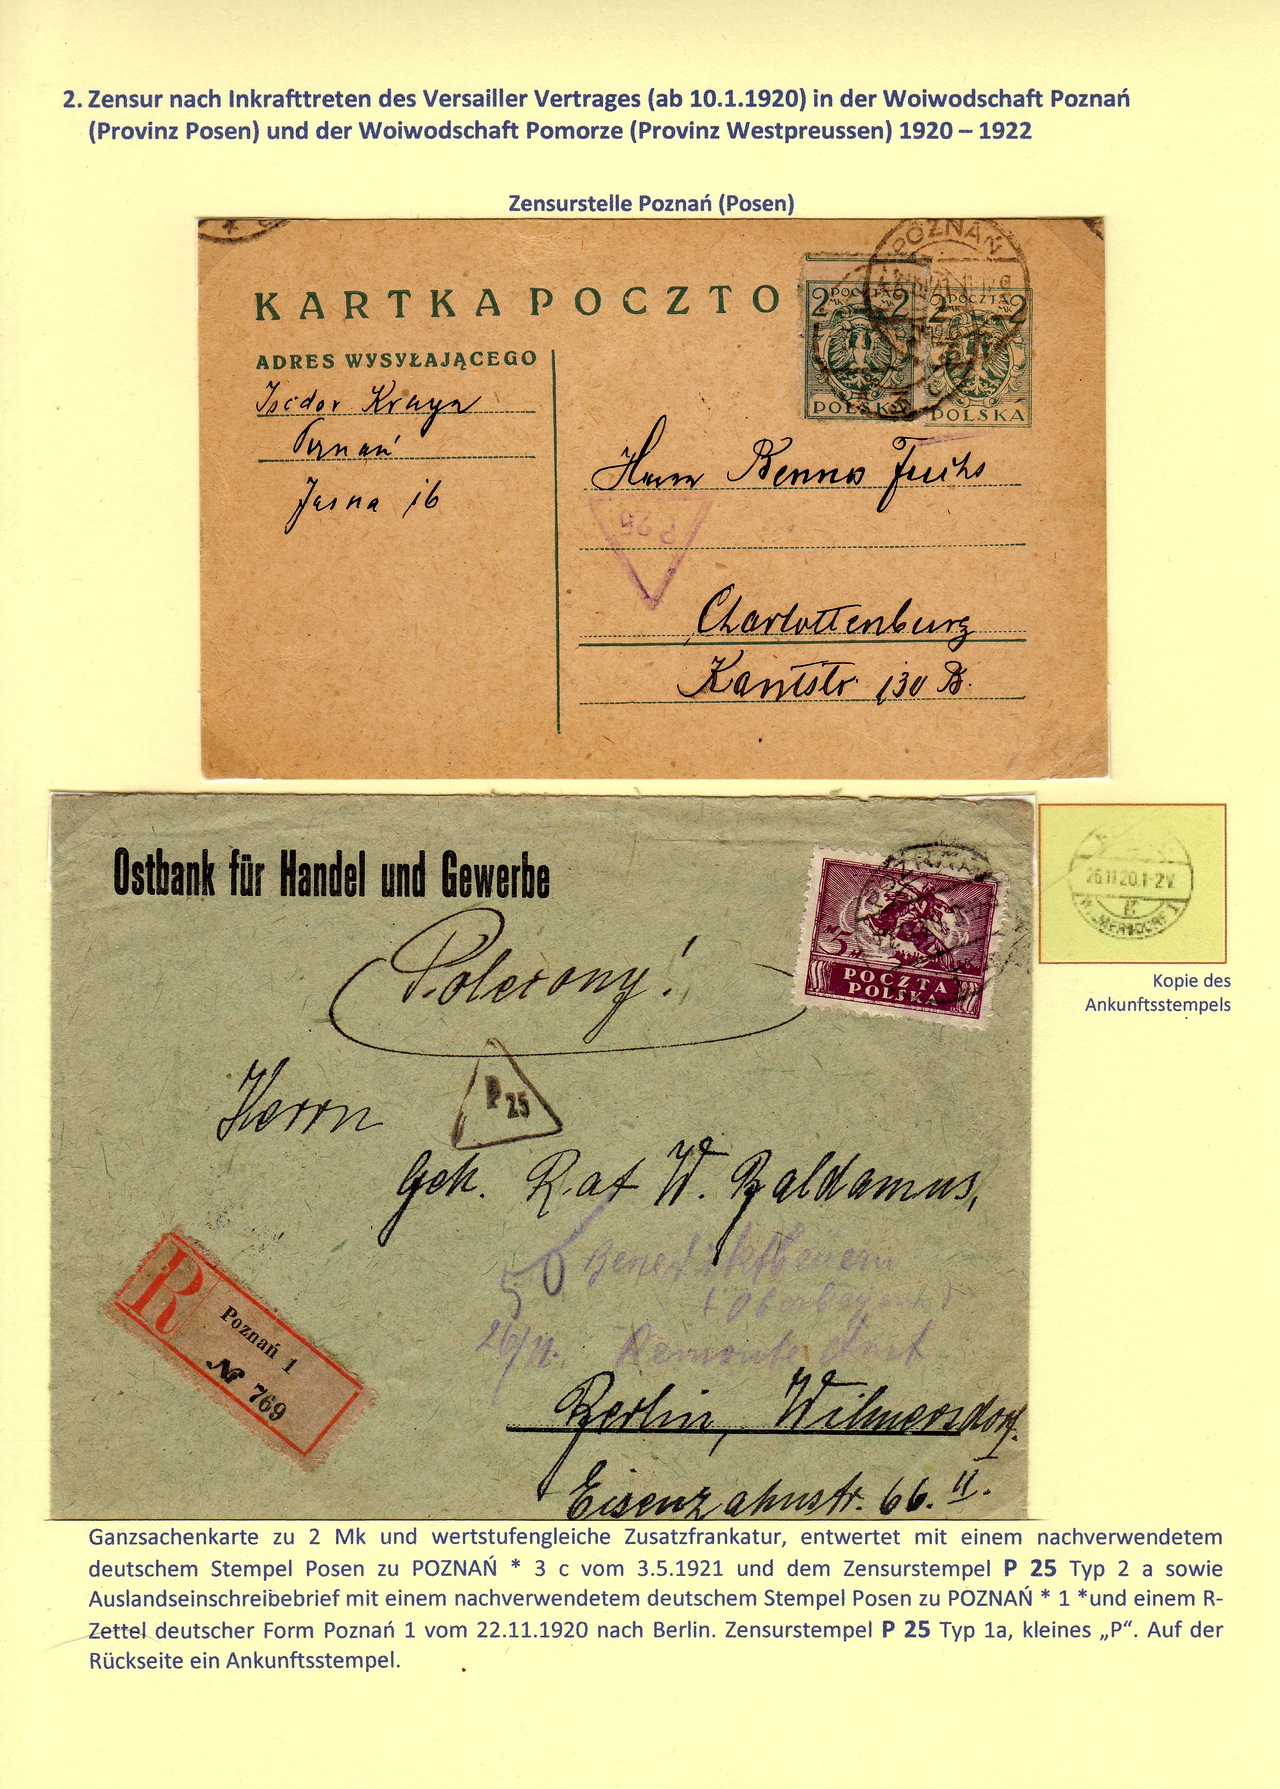 2. Zensur nach Inkrafttreten des Versailler Vertrages (ab 10.1.1920) in der Woiwodschaft Poznań
(Provinz Posen) und der Woiwodschaft Pomorze (Provinz Westpreussen) 1920 – 1922
Zensurstelle Poznań (Posen)
KARTKA POCZTO
POZNAŃ
2 POCZTA 2
MK MK
POLSKA
2 POCZTA 2
MK MK
POLSKA
ADRES WYSYŁAJĄCEGO
Isidor Kraya
Poznań
Jasna 16
Herrn Benno Fuchs
P 25
Charlottenburg
Kantstr. 130 B.
Ostbank für Handel und Gewerbe
Polecony!
5
POCZTA
POLSKA
26.11.20.1-2V.
WILMERSDORF 1
Kopie des
Ankunftsstempels
P 25
Herrn
Geh. Rat W. Baldamus,
50 Benediktbeuern
(Oberbayern)
26/11. Remonte Amt
R
Poznań 1
№ 769
Berlin, Wilmersdorf.
Eisenzahnstr. 66. II.
Ganzsachenkarte zu 2 Mk und wertstufengleiche Zusatzfrankatur, entwertet mit einem nachverwendetem
deutschem Stempel Posen zu POZNAŃ * 3 c vom 3.5.1921 und dem Zensurstempel P 25 Typ 2 a sowie
Auslandseinschreibebrief mit einem nachverwendetem deutschem Stempel Posen zu POZNAŃ * 1 *und einem R-
Zettel deutscher Form Poznań 1 vom 22.11.1920 nach Berlin. Zensurstempel P 25 Typ 1a, kleines „P“. Auf der
Rückseite ein Ankunftsstempel.